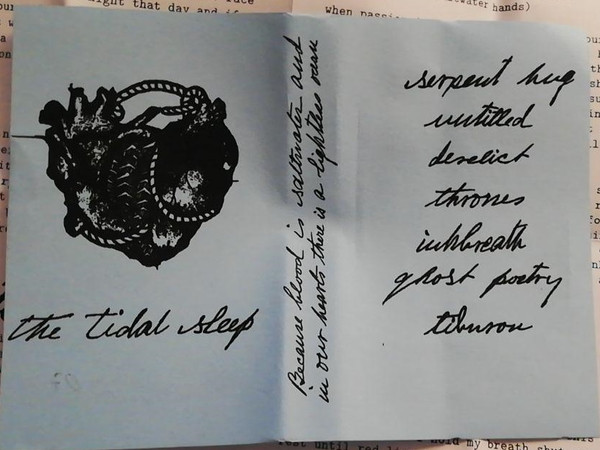 that day and
when
hands)
the tidal sleep
Because blood is saltwater and
in our hearts there is a lightless ocean
serpent hug
untitled
derelict
thrones
inkbreath
ghost poetry
tiburon
rest until red
hold my breath